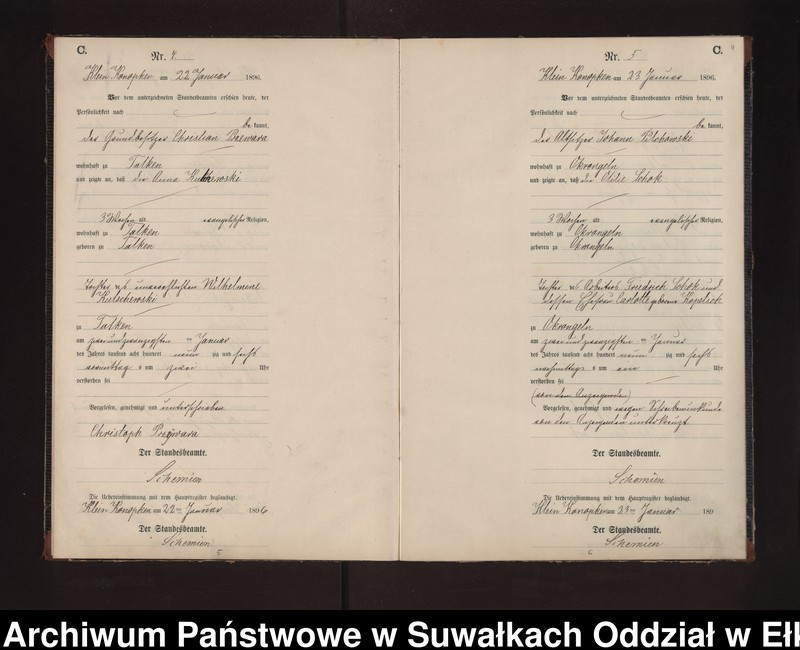 C.
Nr. 4.
Klein Konopken am 22 Januar 1896.
Vor dem unterzeichneten Standesbeamten erschien heute, der
Persönlichkeit nach
be kannt,
der Grundbesitzer Christian Brewara
wohnhaft zu Talken
und zeigte an, daß die Anna
3 Wochen alt evangelischer Religion,
wohnhaft zu Talken
geboren zu Talken
Tochter der unverehelichten Wilhelmine
Kutschewski
zu Talken
am zwei und zwanzigsten ten Januar
des Jahres tausend acht hundert neun zig und sechs
vormittags um zwei Uhr
verstorben sei
Vorgelesen, genehmigt und unterschrieben
Christoph
Der Standesbeamte.
Schemien
Die Uebereinstimmung mit dem Hauptregister beglaubigt.
Klein Konopken am 22ten Januar 1896
Der Standesbeamte.
Schemien
5
Nr. 5 C.
Klein Konopken am 23 Januar 1896.
Vor dem unterzeichneten Standesbeamten erschien heute, der
Persönlichkeit nach
be kannt,
der Altsitzer Johann
wohnhaft zu Okrongeln
und zeigte an, daß die Otilie Sobok
3 Wochen alt evangelischer Religion,
wohnhaft zu Okrongeln
geboren zu Okrongeln
Tochter des Arbeiters Friedrich Sobok und
dessen Ehefrau Carlotte geborene
zu Okrongeln
am zwei und zwanzigsten ten Januar
des Jahres tausend acht hundert neun zig und sechs
nachmittags um Uhr
verstorben sei
(von dem Anzeigenden)
Vorgelesen, genehmigt und wegen Schreibensunkunde
von dem Anzeigenden unterkreuzt.
Der Standesbeamte.
Schemien
Die Uebereinstimmung mit dem Hauptregister beglaubigt.
Klein Konopken am 23ten Januar 189
Der Standesbeamte.
Schemien
6
Archiwum Państwowe w Suwałkach Oddział w Ełk